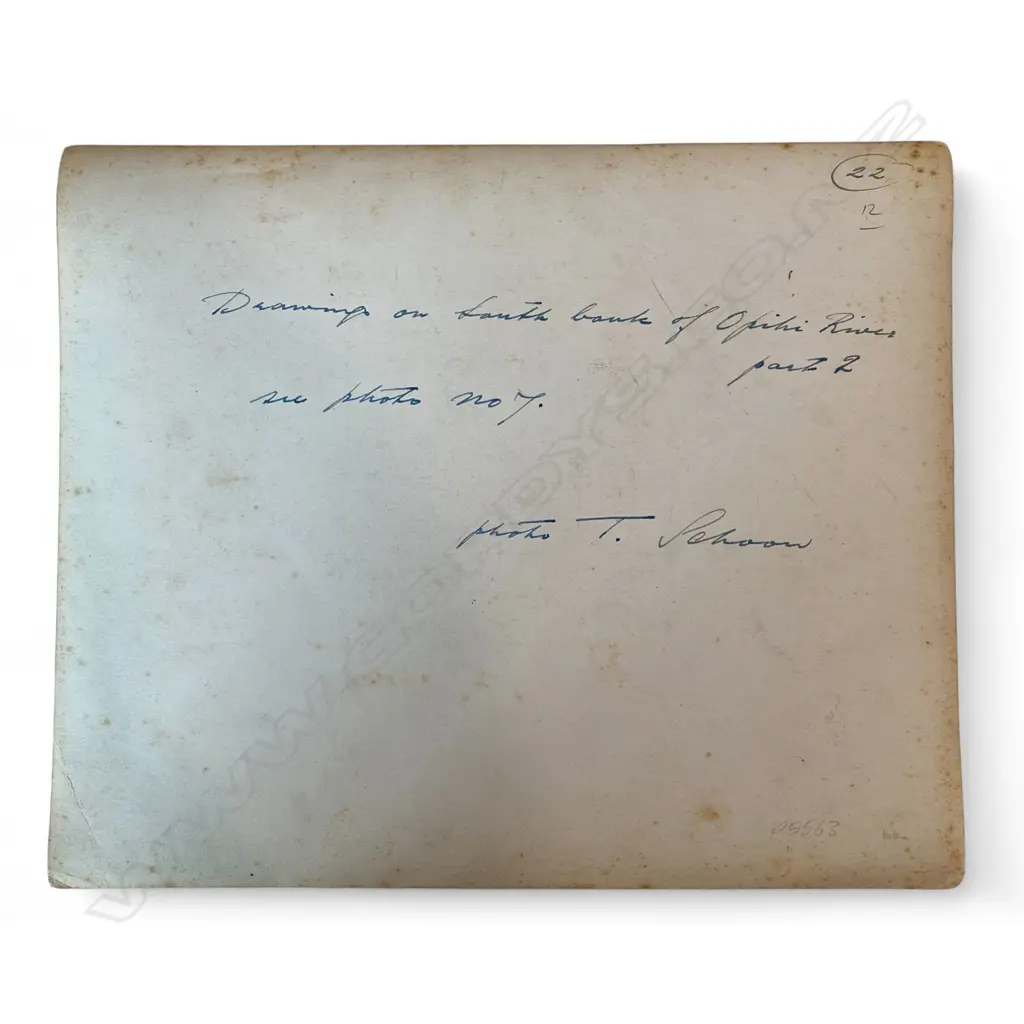 22
12
Drawings on South bank of Opihi River
part 2
see photo no 7.
photo T. Schoon
05563